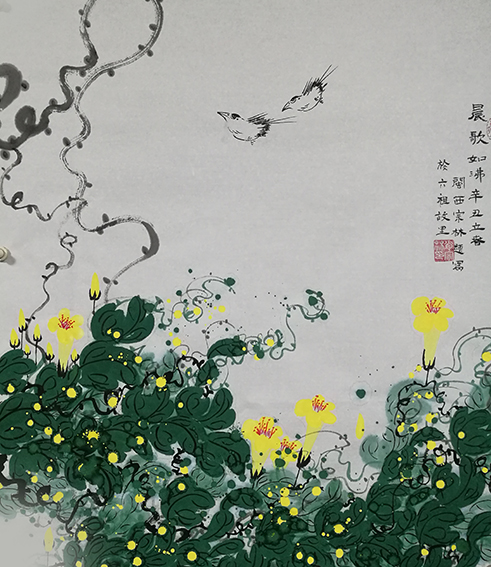 晨歌如沸辛丑立春
閩西宗林題寫
於六祖故里